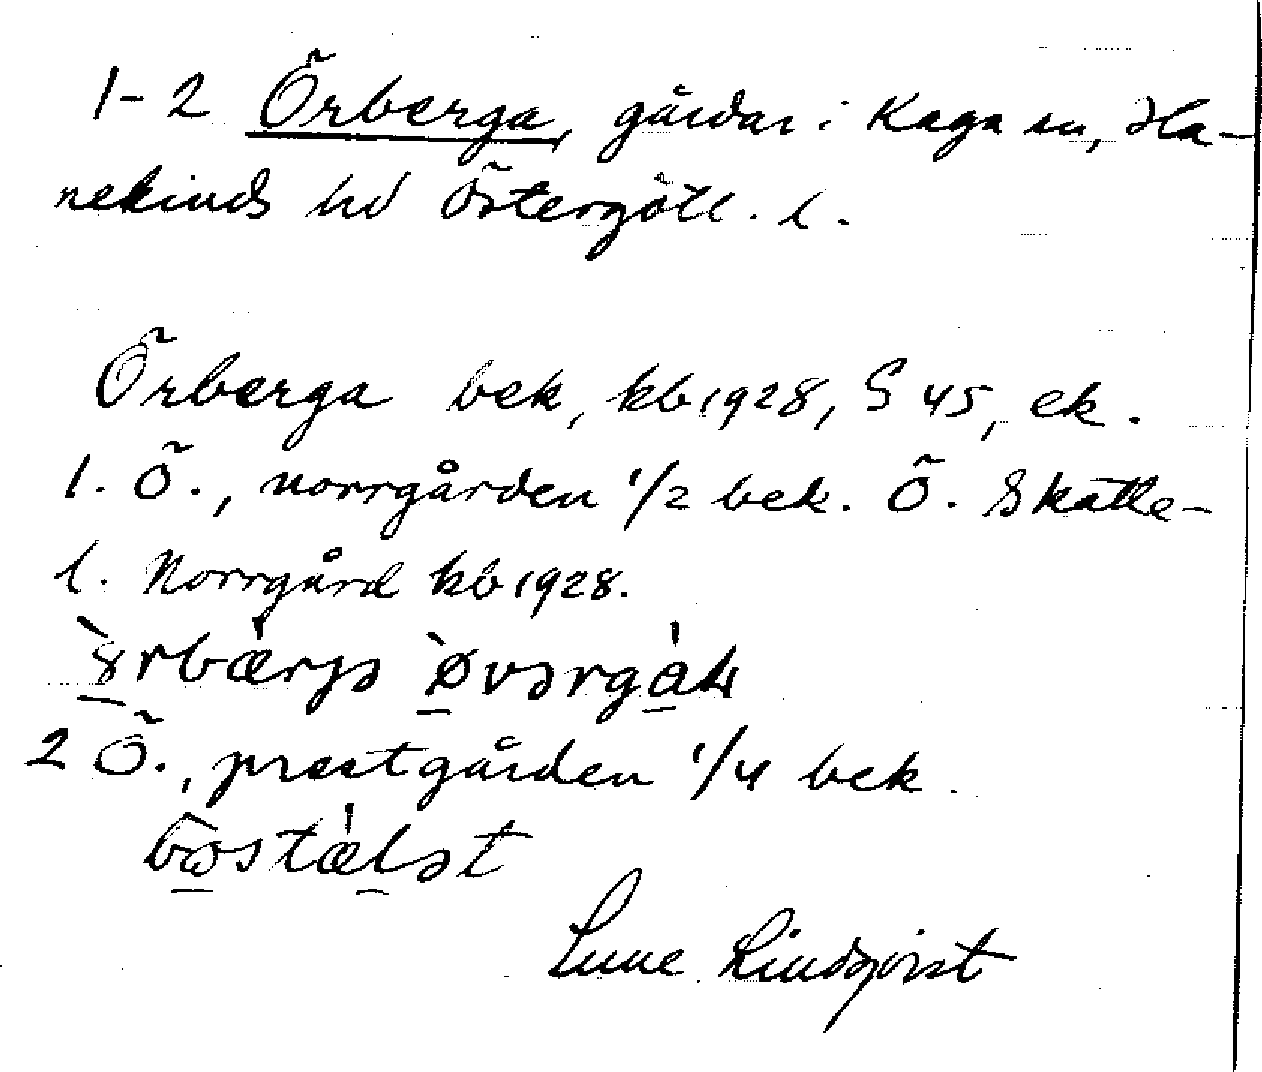 1-2 Örberga, gårdar i Kaga sn, Ha-
nekinds hd Östergötl. l.
Örberga bek, kb 1928, § 45, ek.
1. Ö., norrgården 1/2 bek. Ö. Skatte-
l. Norrgård kb 1928.
2 Ö., prestgården 1/4 bek.
Sune Lindqvist